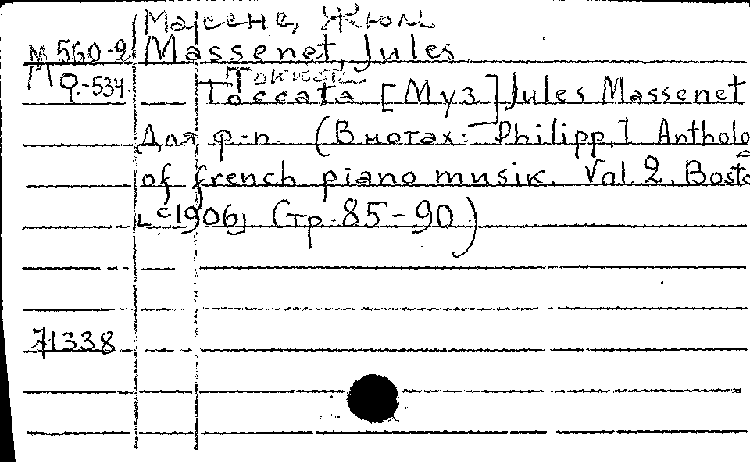 Массне, Жюль
М 560-2 Massenet, Jules
М Ф-534 Токката
Toccata [Муз] Jules Massenet
Для ф-п. (В нотах: Philipp, I Antholo
of french piano musik. Vol 2. Bosto
[c1906] Стр. 85-90)
71338